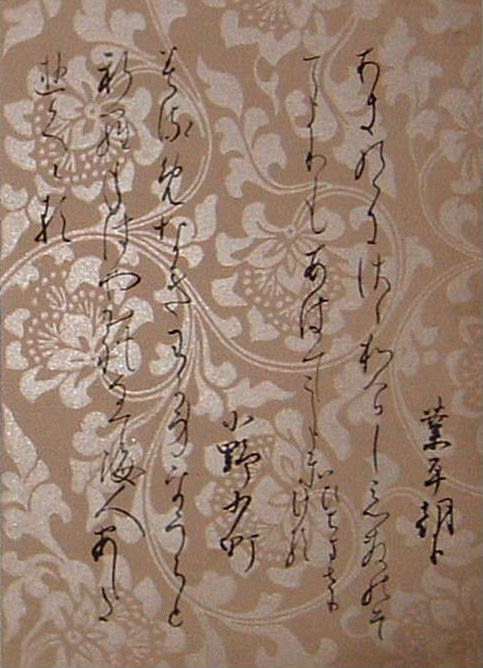 業平朝臣
あきのにさゝわけしあさのそ
てよりもあはてこしよそひちまさりける
小野小町
みるめなきわか身をうらと
しらねはやかれなて海人のあした
ゆくゝる